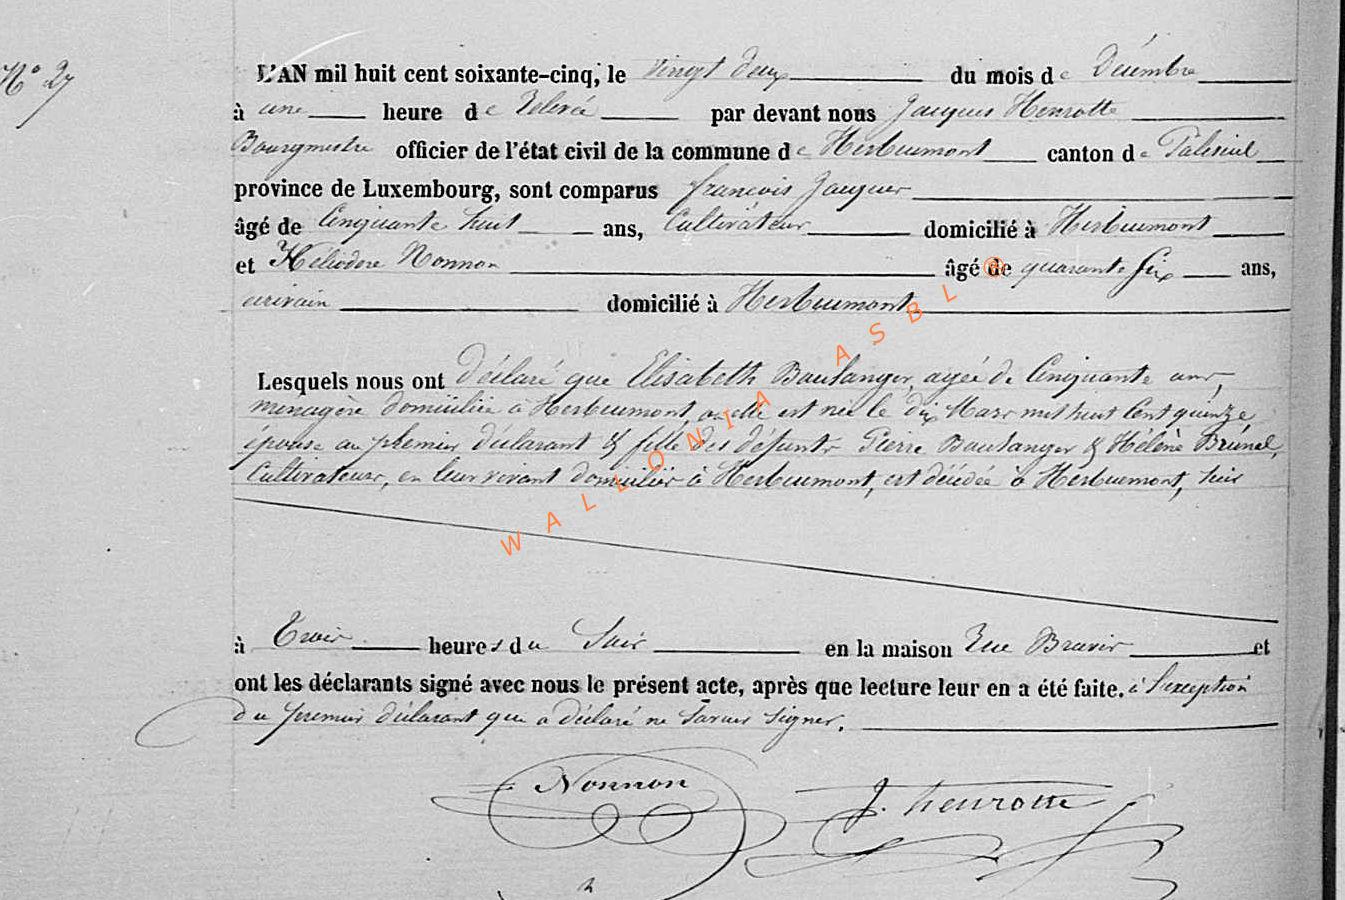 N° 27
L'AN mil huit cent soixante-cinq, le vingt deux du mois de Décembre
à une heure de relevée par devant nous Jacques Henrotte
Bourgmestre officier de l'état civil de la commune de Herbeumont canton de Paliseul
province de Luxembourg, sont comparus françois Jacques
âgé de Cinquante huit ans, Cultivateur domicilié à Herbeumont
et Héliodore Nonnon âgé de quarante Six ans,
écrivain domicilié à Herbeumont
Lesquels nous ont déclaré que Elisabeth Boulanger, agée de Cinquante ans,
menagère domiciliée à Herbeumont, où elle est née le dix Mars mil huit Cent quinze
épouse au premier déclarant & fille des défunts Pierre Boulanger & Hélène Brunel,
Cultivateurs, en leur vivant domiciliés à Herbeumont, est décédée à Herbeumont, hier
à Trois heures du Soir en la maison Rue Bravir et
ont les déclarants signé avec nous le présent acte, après que lecture leur en a été faite. à l'exception
du premier déclarant qui a déclaré ne savoir signer.
Nonnon J. henrotte
WALLONIA ASBL ®